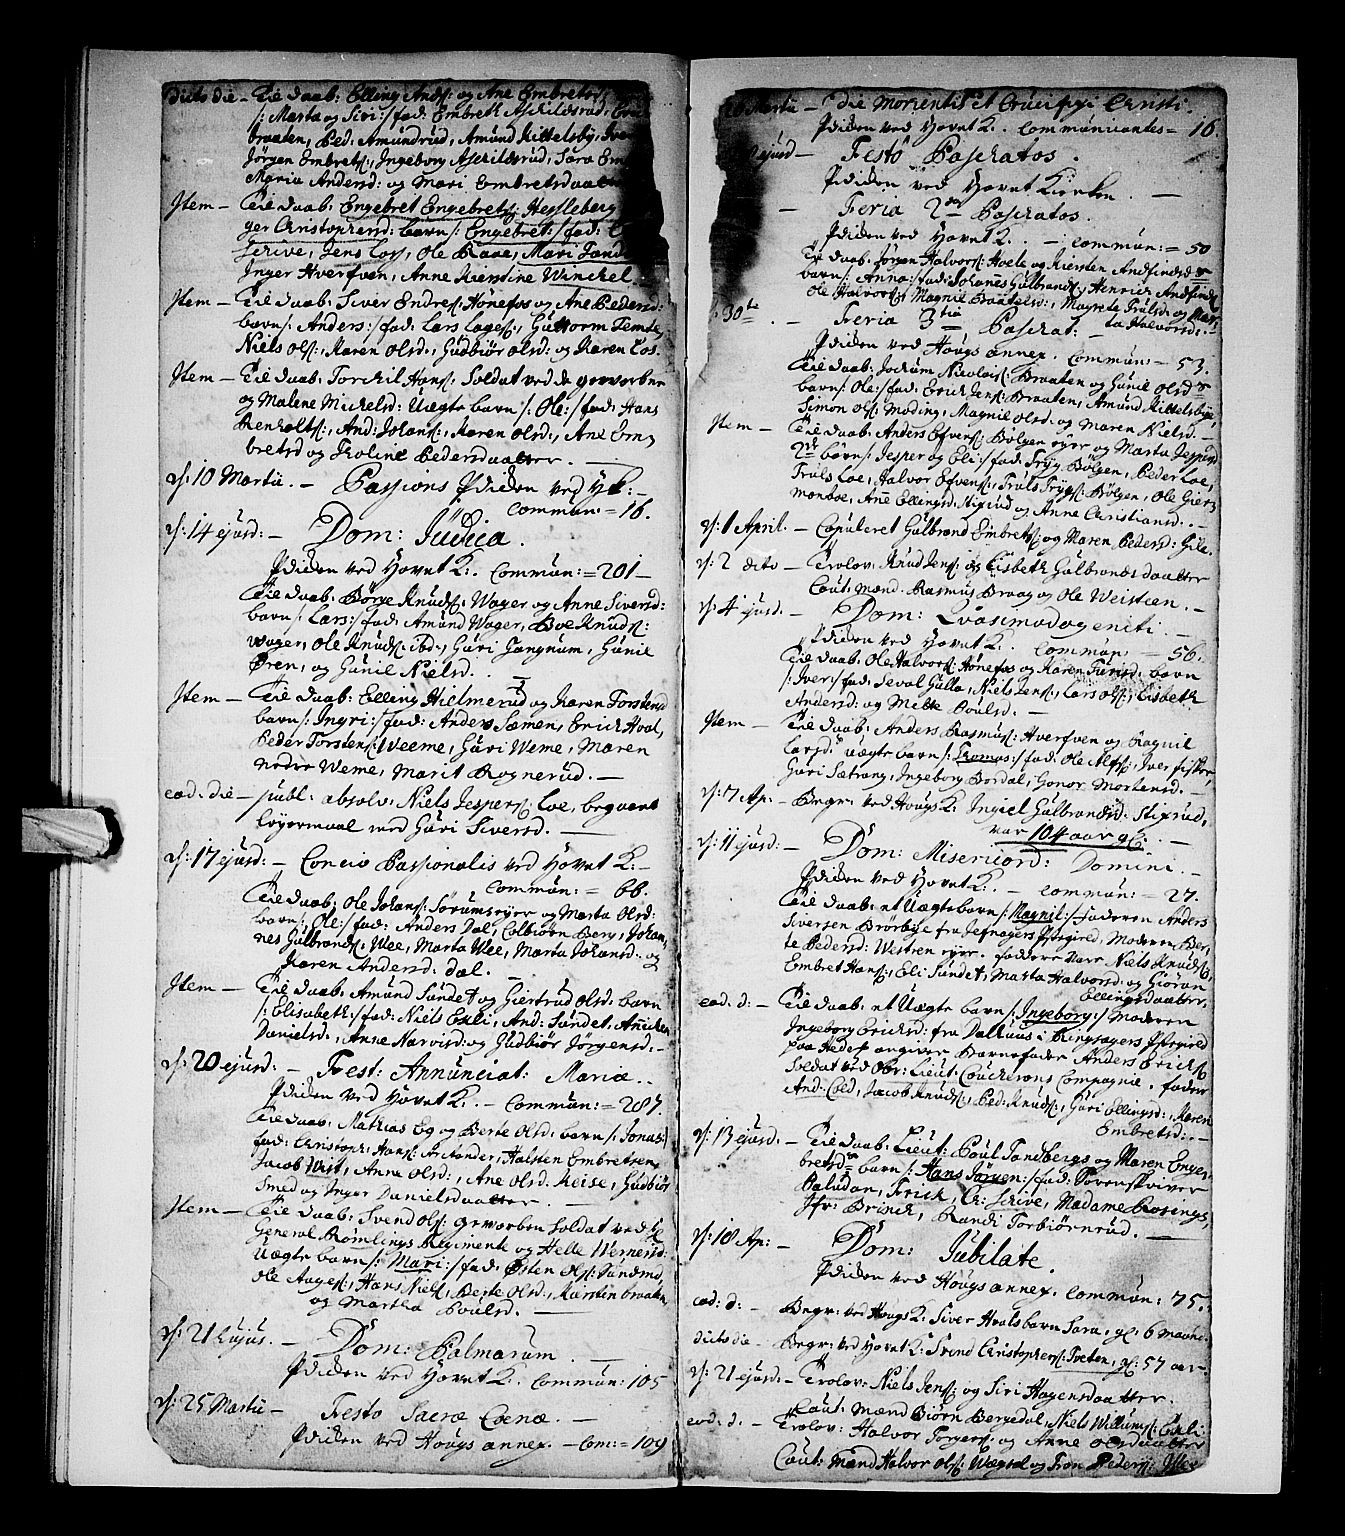 dicto die – Til daab: Elling Ands: og Ane Embretsd:
/: Marta og Siri :/ fad: Embreth Askildsrud,
braaten, Ped: Amundrud, Amund Kittelsby,
Jørgen Embrets:, Ingeborg Askildsrud, Sara Em
Maria Andersd: og Mari Embretsdaatter
Item – Til daab: Engebret Engebrets: Hesleberg
ger Christophersd: barn /: Engebret :/ fad:
Scrive, Jens Loss, Ole Raae, Mari Sand
Inger Hverfven, Anne Kirstine Winckel.
Item – Til daab: Siver Endres: Hønefos og Ane Pedersd:
barn /: Anders :/ fad: Lars Lages:, Guttorm Temte,
Niels Ols:, Karen Olsd:, Gudbiør Olsd: og Karen Los.
Item – Til daab: Torchil Hans: Soldat ved de gevorbne
og Malene Michelsd: Uægte barn /: Ole :/ fad: Hans
Renholts:, And: Johans:, Karen Olsd:, Ane Em-
bretsd og Karline Pedersdaatter. –
d: 10 Martii. – Passions Prædiken ved HK: –
commun: = 16.
d: 14 ejusd: – Dom: Judica.
Prædiken ved Hovet K:. Commun: = 201 –
Til daab: Børge Knuds: Wager og Anne Siversd:
barn /: Lars :/ fad: Amund Wager, Boe Knuds:
Wager, Ole Knuds: Ibd:, Guri Jangnum, Gunil
Øren, og Gunil Nielsd. –
Item – Til daab: Elling Hielmerud og Karen Torstensd
barn /: Ingri :/ fad: Anders Sæmen, Erick Hval,
Peder Torstens: Weeme, Guri Weme, Maren
nedre Weme, Marit Rognerud. –
eod: die – publ: absolv: Niels Jespers: Loe, begaaet
leyermaal med Guri Siversd. –
d: 17 ejusd: – Concio Passionalis ved Hovet K: –
Commun: = 66.
Til daab: Ole Johans: Sørumseyer og Marta Olsd:
barn /: Ole :/ fad: Anders Dal, Colbiørn Berg, Johan-
nes Gulbrands: Wlee, Marta Wlee, Marta Johansd: og
Karen Andersd: Dal.
Item – Til daab: Amund Sundet og Giertrud Olsd: barn
/: Elisabeth :/ fad: Niels Exli, And: Sundet, Anichen
Danielsd:, Anne Narvisd: og Gudbiør Jørgensd: –
d: 20 ejusd: – Fest: Annunciat: Mariæ. –
Prædiken ved Hovet K:. – Commun: = 287.
Til daab: Mathias Eg og Berte Olsd: barn /: Jonas :/
fad: Christoph: Hans: Arctander, Halsten Embretsen,
Jacob Wist, Anne Olsd:, Ane Olsd: Reise, Gudbiør
Smed og Inger Danielsdaatter. –
Item – Til daab: Svend Ols: gevorben Soldat ved H:
General Rømlings Regimente og Helle Wernersd:
Uægte barn /: Mari :/ fad: Østen Ols: Sundmo,
Ole Aages:, Hans Niels:, Berte Olsd:, Kirsten braaten,
og Martha Poulsd. –
d: 21 Hujus. – Dom: Palmarum. –
Prædiken ved Hovet K:. Commun: 105
d: 25 Martii – Festo Sacræ Coenæ. –
Prædiken ved Hougs annex. – Com: = 109
26 Martii – Die Morientis et Crucifixi Christi.
Prædiken ved Hovet K:. Communicantes = 16.
ejusd – Festo Paschatos.
Prædiken ved Hovet Kirken –
– Feria 2da Paschatos.
Prædiken ved Hovet K:. – commun: = 50
Til daab: Jørgen Halvors: Hvele og Kiersten Andfindsd:
barn /: Anna :/ fad: Johanes Gulbrands:, Henrich Andfinds:
Ole Halvors:, Magnil Brantelsd:, Magrete Trulsd: og Mar-
ta Halvorsd: –
d: 30te – Feria 3tia Paschat:
Prædiken ved Hougs annex. Commun: = 53.
Til daab: Jochum Nicolais: Braaten og Gunil Olsd:
barn /: Ole :/ fad: Erich Jens: Braaten, Amund Kittelsbye,
Simon Ols: Moding, Magnil Olsd: og Maren Nielsd. –
Item – Til daab: Anders Efvens: Bølgen eyer og Marta Jespersd
2de børn /: Jesper og Eli :/ fad: Tryg Bølgen, Peder Loe,
Truls Loe, Halvor Efvens:, Truls Trygs: Bølgen, Ole Gier-
monboe, Ane Ellingsd, Stixrud og Anne Christiansd. –
d: 1 April. – Copuleret Gulbrand Embrets: og Maren Pedersd: Gile.
d: 2 dito – Trolov: Knud Jens: og Lisbeth Gulbrandsdaatter
Caut: Mænd Rasmus Braag og Ole Weisteen. –
d: 4 ejusd. – Dom: Qvasimodogeniti. –
Prædiken ved Hovet K:. commun: = 56.
Til daab: Ole Halvors: Hønefos og Karen Jurisd: barn
/: Iver :/ fad: Seval Gulla, Niels Jens:, Lars Ols:, Lisbeth
Andersd: og Mette Poulsd. –
Item – Til daab: Anders Rasmus: Hverfven og Ragnil
Larsd: uægte barn /: Thomas :/ fad: Ole Alfs:, Iver fisker,
Guri Sætrang, Ingeborg Bordal, Gonor Mortensd. –
d: 7 Ap: – Begr: ved Hougs K: Ingiel Gulbrandsd: Stixrud,
var 104 aar gl. –
d: 11 ejusd: – Dom: Misericord: Domini. –
Prædiken ved Hovet K:. – commun: = 27.
Til daab: et Uægte barn /: Magnil :/ faderen Anders
Siversen Brørbye fra Jefnagers Pstegield, Moderen Ber-
te Pedersd: Westren eyer. faddere vare Niels Knuds:,
Embret Hans:, Eli Sundet, Marta Halvord: og Giøran
Ellingsdaatter,
eod: d: – Til daab: et Uægte barn /: Ingeborg :/ Moderen
Ingeborg Ericksd: fra Dalhuus i Ringsagers Pstegield
paa Hedef angiver Barnefader Anders Ericks:
Soldat ved Obr: Lieut: Couchrons Compagnie. fadere
And: Coed, Jacob Knuds:, Ped: Knuds:, Guri Ellingsd:, Karen
Embretsd: –
d: 13 ejusd: – Til daab: Lieut: Poul Sandbergs og Maren Enge-
bretsd: barn /: Hans Jørgen :/ fad: Sorenskriver
Paludan, Frick, Cr: Scrive, Madame Rosings,
Jfr: Brinck, Randi Torbiørnrud. –
d: 18 Ap: – Dom: Jubilate.
Prædiken ved Hougs annex. Commun: 75.
eod: d: – Begr: ved Hougs K: Siver Hvals barn Sara, gl: 6 maane.
dicto die – Begr: ved Hovet K: Svend Christophers: Tveten, gl: 57 aar –
d: 21 ejusd. – Trolov: Niels Jens: og Siri Hagensdaatter.
Caut: Mænd Biørn Bergedal, Niels Willums: Exli:
eod: d: – Trolov: Halvor Torgers: og Anne Olsdaatter
Caut: Mænd Halvor Ols: Wægsel og Tron Peders: Wlee